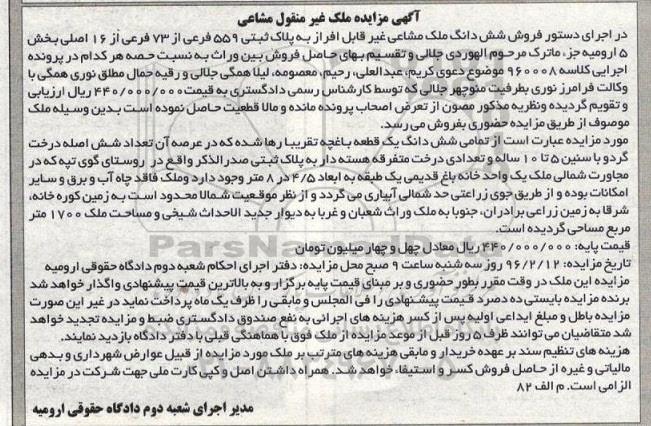 آگهی مزایده ملک غیر منقول مشاعی
در اجرای دستور فروش شش دانگ ملک مشاعی غیر قابل افراز به پلاک ثبتی ۵۵۹ فرعی از ۷۳ فرعی از ۱۶ اصلی بخش
۵ ارومیه جزء ماترک مرحوم الهوردی جلالی و تقسیم بهای حاصل فروش بین وراث به نسبت حصه هر کدام در پرونده
اجرایی کلاسه ۹۶۰۰۰۸ موضوع دعوی کریم، عبدالعلی، رحیم، معصومه، لیلا همگی جلالی و رقیه جمال مطلق نوری همگی با
وکالت فرامرز نوری بطرفیت منوچهر جلالی که توسط کارشناس رسمی دادگستری به قیمت ۴۴۰/۰۰۰/۰۰۰ ریال ارزیابی
و تقویم گردیده ونظریه مذکور مصون از تعرض اصحاب پرونده مانده و مالا قطعیت حاصل نموده است بدین وسیله ملک
موصوف از طریق مزایده حضوری بفروش می رسد.
مورد مزایده عبارت است از تمامی شش دانگ یک قطعه باغچه تقریبا رها شده که در عرصه آن تعداد شش اصله درخت
گردو با سنین ۵ تا ۱۰ ساله و تعدادی درخت متفرقه هسته دار به پلاک ثبتی صدر الذکر واقع در روستای گوی تپه که در
مجاورت شمالی ملک یک واحد خانه باغ قدیمی یک طبقه به ابعاد ۴/۵ در ۸ متر وجود دارد وملک فاقد چاه آب و برق و سایر
امکانات بوده و از طریق جوی زراعتی حد شمالی آبیاری می گردد و از نظر موقعیت شمالا محدود است به زمین کوره خانه،
شرقا به زمین زراعی برادران، جنوبا به ملک وراث شعبان و غربا به دیوار جدید الاحداث شیخی و مساحت ملک ۱۷۰۰ متر
مربع مساحی گردیده است.
قیمت پایه: ۴۴۰/۰۰۰/۰۰۰ ریال معادل چهل و چهار میلیون تومان
تاریخ مزایده: ۹۶/۲/۱۲ روز سه شنبه ساعت ۹ صبح محل مزایده: دفتر اجرای احکام شعبه دوم دادگاه حقوقی ارومیه
مزایده این ملک در وقت مقرر بطور حضوری و بر مبنای قیمت پایه برگزار و به بالاترین قیمت پیشنهادی واگذار خواهد شد
برنده مزایده بایستی ده درصد قیمت پیشنهادی را فی المجلس و مابقی را ظرف یک ماه پرداخت نماید در غیر این صورت
مزایده باطل و مبلغ ابداعی اولیه پس از کسر هزینه های اجرائی به نفع صندوق دادگستری ضبط و مزایده تجدید خواهد
شد متقاضیان می توانند ظرف ۵ روز قبل از موعد مزایده از ملک فوق با هماهنگی قبلی با دفتر دادگاه بازدید نمایند.
هزینه های تنظیم سند بر عهده خریدار و مابقی هزینه های مترتب بر ملک مورد مزایده از قبیل عوارض شهرداری و بدهی
مالیاتی و غیره از حاصل فروش کسر و استیفاء خواهد شد. همراه داشتن اصل و کپی کارت ملی جهت شرکت در مزایده
الزامی است. م الف ۸۲
مدیر اجرای شعبه دوم دادگاه حقوقی ارومیه